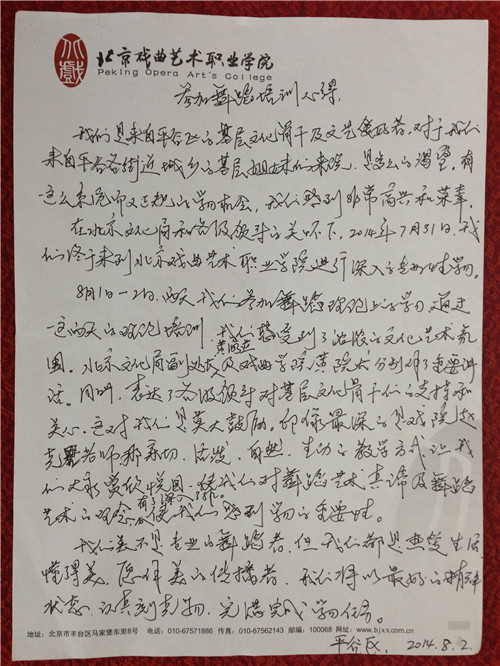 北戲
北京戏曲艺术职业学院
Peking Opera Art's College
参加舞蹈培训心得
我们是来自平谷区的基层文化骨干及文艺爱好者,对于我们
来自平谷各街道城乡的基层姐妹们来说,是多么的渴望,有
这么系统而又正规的学习机会,我们感到非常高兴和荣幸。
在北京文化局和各级领导的关怀下,2014年7月31日,我
们终于来到北京戏曲艺术职业学院进行深入的专业性学习。
8月1日-2日两天我们参加舞蹈班的学习,通过
这两天的培训,我们感受到了浓厚的文化艺术氛
围。北京文化局副处长及戏曲学院黄院长分别作了重要讲
话。同时,表达了各级领导对基层文化骨干们的支持和
关心,这对我们是莫大鼓励。印象最深的是戏院赵
老师称亲切、活泼、自然、生动的教学方式让我
们大家赏心悦目,使我们对舞蹈艺术真谛及舞蹈
艺术的理念有了深入了解,使我们感到学习的重要性。
我们虽不是专业的舞蹈者,但我们都是热爱生活
懂得美,愿作美的传播者,我们将以最好的精神
状态,认真刻苦学习,完满完成学习任务。
地址:北京市丰台区马家堡东里8号 电话:010-67571886 传真:010-67562143 邮编:100068 网址:www.bjxx.com.cn
平谷区,2014.8.2.